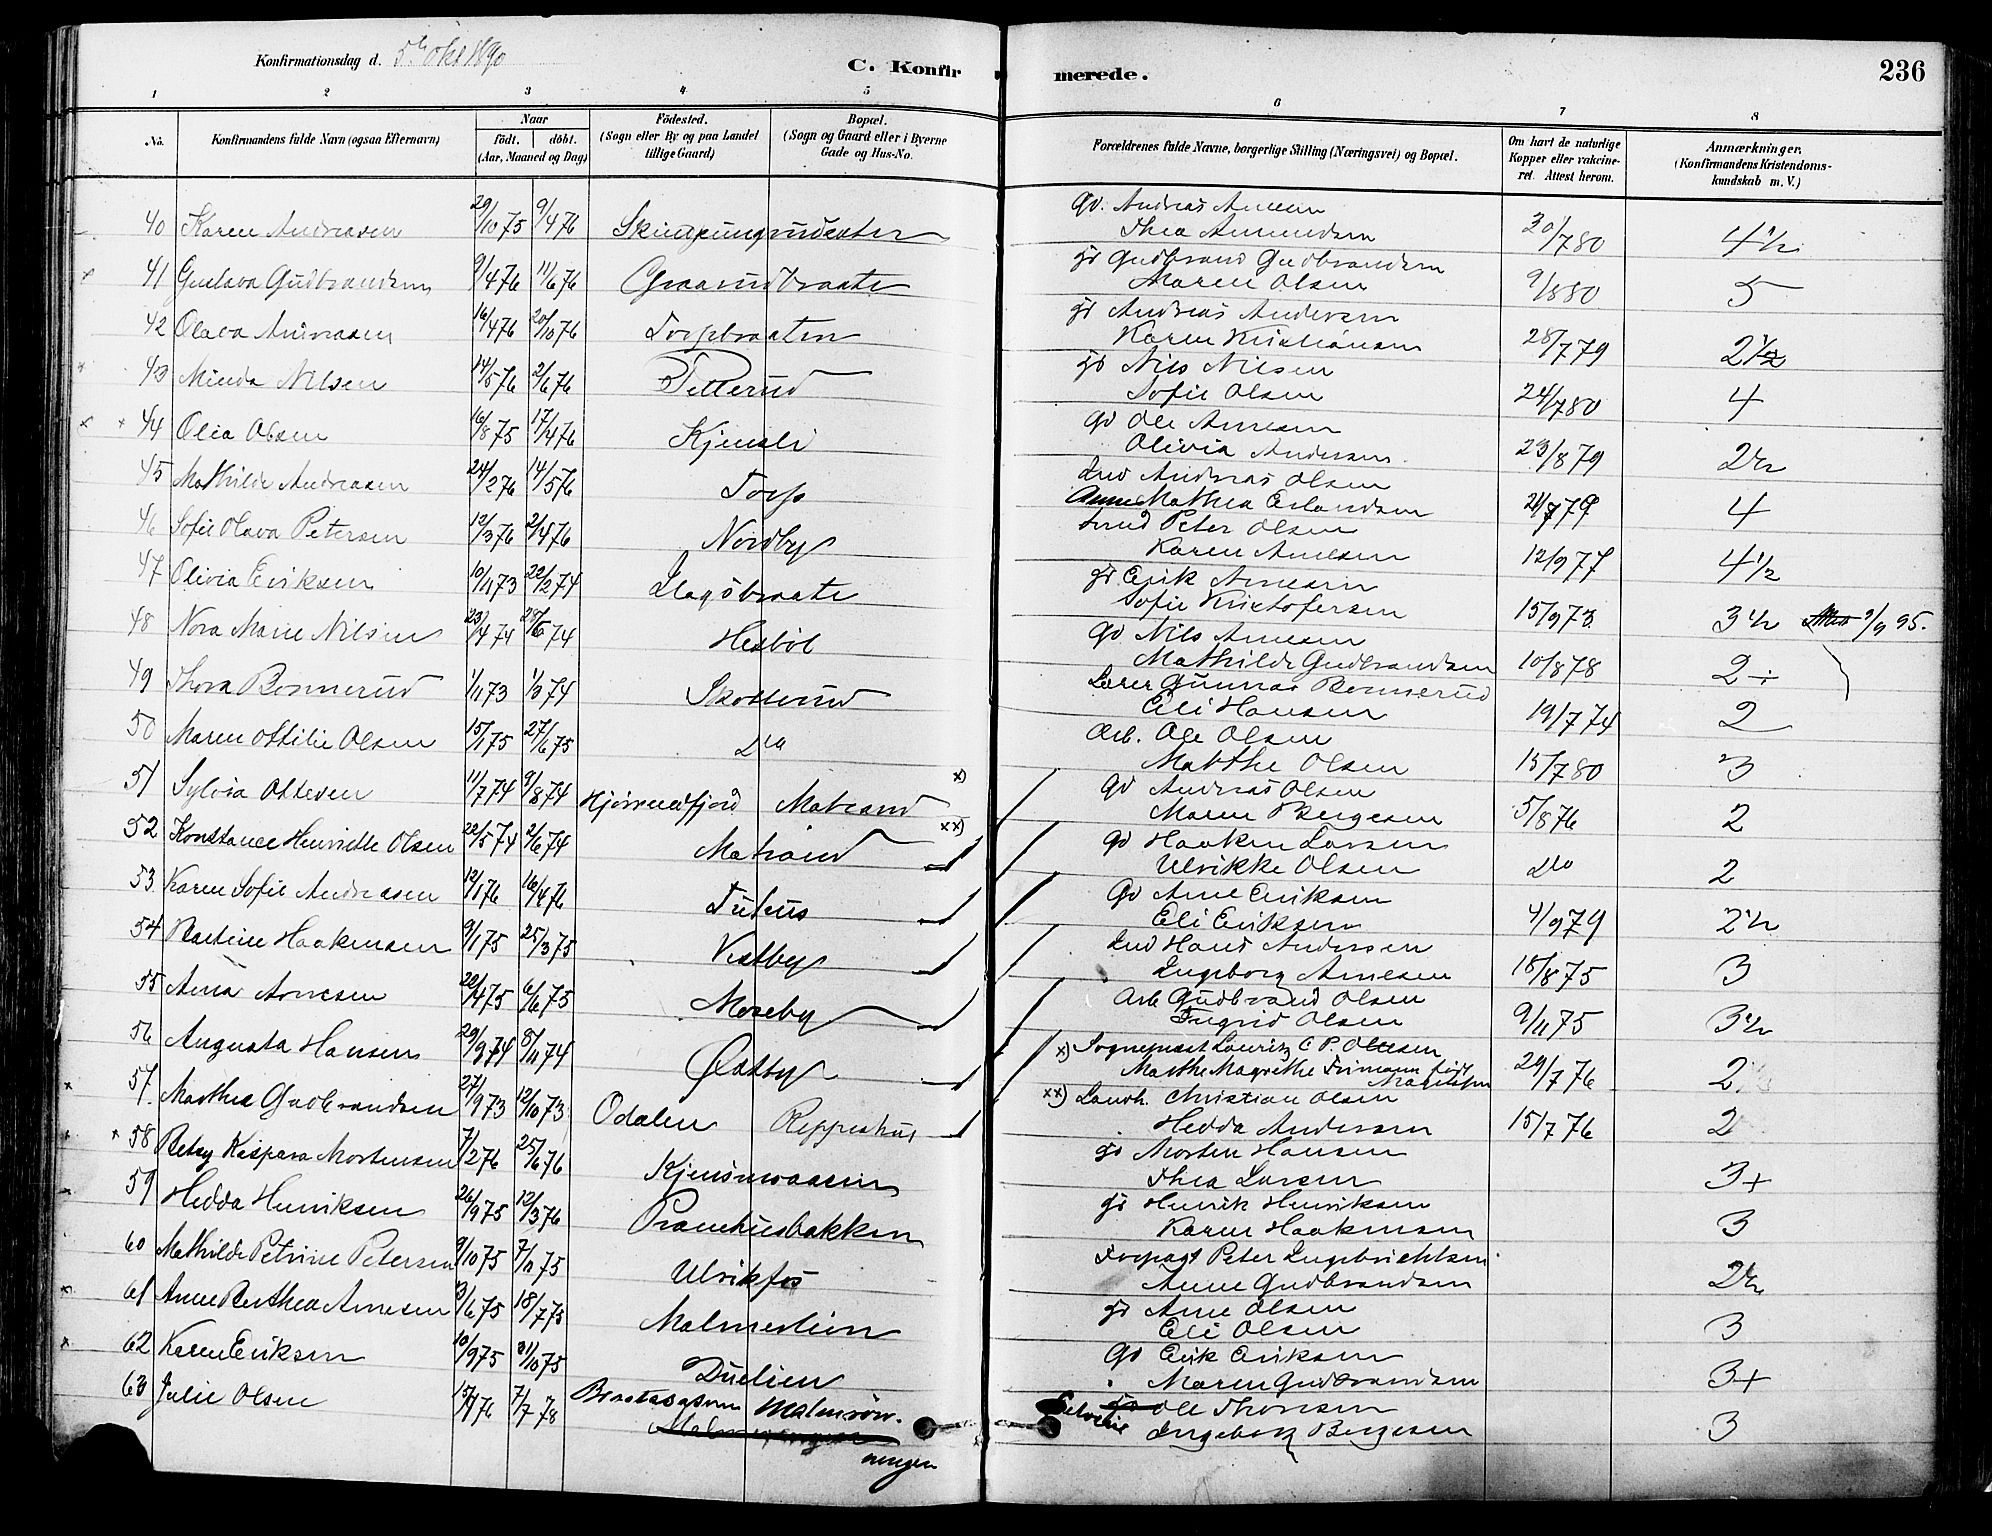 Konfirmationsdag d. 5te Okt 1890
C. Konfirmerede. 236
1 2 3 4 5 6 7 8
No. Konfirmandens fulde Navn (ogsaa Efternavn) Naar födt. döbt. (Aar, Maaned og Dag) Födested. (Sogn eller By og paa Landet tillige Gaard) Bopæl. (Sogn og Gaard eller i Byerne Gade og Hus-No. Forældrenes fulde Navne, borgerlige Stilling (Næringsvei) og Bopæl. Om havt de naturlige Kopper eller vaccineret. Attest herom. Anmærkninger. (Konfirmandens Kristendomskundskab m. V.)
40 Karen Andreasen 29/10 75 9/4 76 Andreas Arnesen Thea Amundsen 30/7 80 4 1/2
41 Gustava Gudbrandsen 9/4 76 11/6 76 Graarudbraate Gudbrand Gudbrandsen Maren Olsen 9/8 80 5
42 Olava Andreasen 16/4 76 20/10 76 Torpbraaten Andreas Andersen Karen Kristiansen 28/7 79 2 1/2
43 Minda Nilsen 14/5 76 2/6 76 Tetterud Nils Nilsen Sofie Olsen 24/7 80 4
44 Olia Olsen 16/8 75 17/4 76 Kjensli Gd Ole Arnesen Olivia Andersen 23/8 79 2 1/2
45 Mathilde Andreasen 24/2 76 14/5 76 Torp Ind Andreas Olsen Anne Mathea Erlandsen 21/7 79 4
46 Sofie Olava Petersen 12/3 76 2/4 76 Nordby Peter Olsen Karen Arnesen 12/9 77 4 1/2
47 Olivia Eriksen 10/11 73 22/2 74 Erik Arnesen Sofie Kristofersen 15/9 73 3 1/2 9/9 95.
48 Nora Marie Nilsen 23/4 74 Hesböl Gd Nils Arnesen Mathilde Gudbrandsen 10/8 78 2÷
49 Thora Bonnerud 1/11 73 1/3 74 Skotterud Lærer Gunnar Bonnerud Eli Hansen 19/7 74 2
50 Maren Ottilie Olsen 15/1 75 27/6 75 Do Arb. Ole Olsen Marthe Olsen 15/7 80 3
51 Sylvia Ottesen 11/7 74 9/8 74 Hjörrendfjord Matrand x) Gd Andreas Olsen Maren Bergesen 5/8 76 2
52 Konstance Henriette Olsen 22/5 74 2/6 74 Matrand xx) Gd Haaken Larsen Ulrikke Olsen Do 2
53. Karen Sofie Andreasen 12/1 76 16/4 76 Gd Arne Eriksen Eli Eriksen 4/9 79 2 1/2
54 Martine Haakensen 9/1 75 25/3 75 Vestby Ind Hans Andersen Ingeborg Arnesen 15/8 75 3
55 Anna Arnesen 22/4 75 6/6 75 Moseby Arb Gudbrand Olsen Ingrid Olsen 9/11 75 3 1/2
56 Augusta Hansen 29/9 74 8/11 74 Östby x) Sogneprest Lauritz C P. Ottesen Marthe Magrethe 29/7 76 2
57. Marthea Gudbrandsen 27/9 73 12/10 73 Odalen Reppeshus xx) Landh. Christian Olsen Hedda Andersen 15/7 76 2
58 Betsy Kaspara Mortensen 7/2 76 25/6 76 Morten Hansen Thea Larsen 3+
59 Hedda Henriksen 26/9 75 12/3 76 Pramhusbakken Henrik Henriksen Karen Haakensen 3
60 Mathilde Petrine Petersen 9/10 75 7/11 75 Ulrikfos Forpagt Peter Ingebrichtsen Anne Gudbrandsen 2 1/2
61 Anne Berthea Arnesen 18/7 75 Malmerlien Arne Olsen Eli Olsen 3
62 Karen Eriksen 10/9 75 31/10 75 Duelien Gd Erik Eriksen Maren Gudbrandsen 3+
63 Julie Olsen 7/7 78 Malmrönningen Selveier Ole Thoresen Ingeborg Bergesen 3